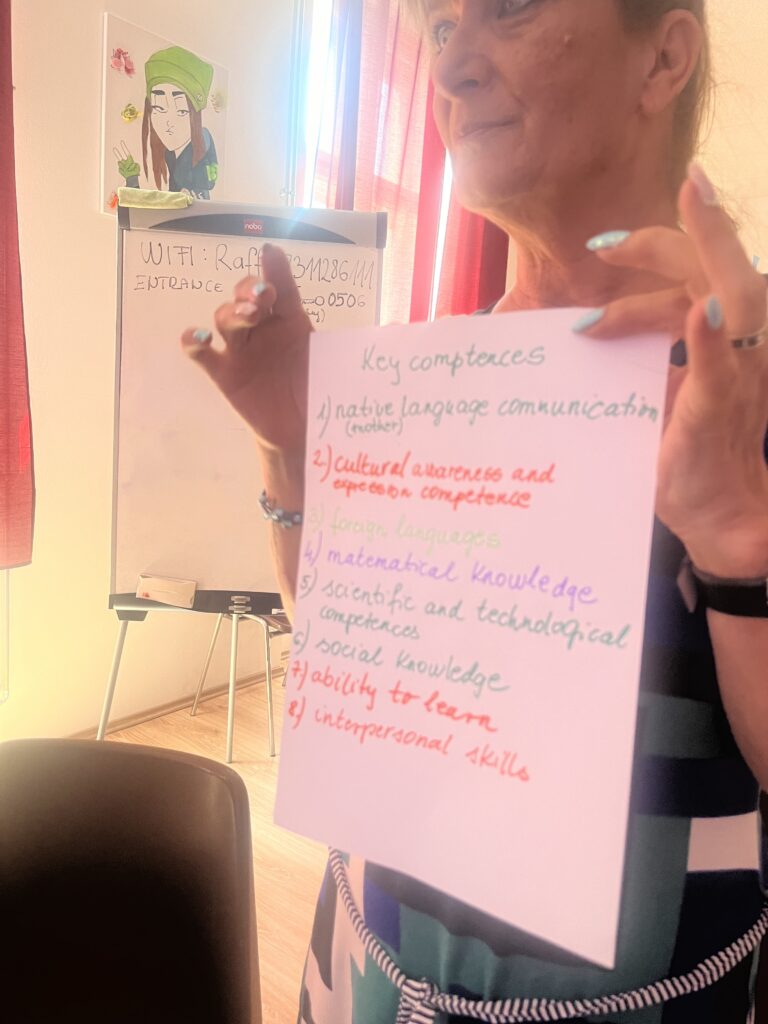 nobo
WIFI: Raff 311286111
ENTRANCE
0506
Key comptences
1) native language communication
(mother)
2) cultural awareness and
expession competence
3) foreign languages
4) matematical knowledge
5) scientific and technological
competences
6) social knowledge
7) ability to learn
8) interpersonal skills